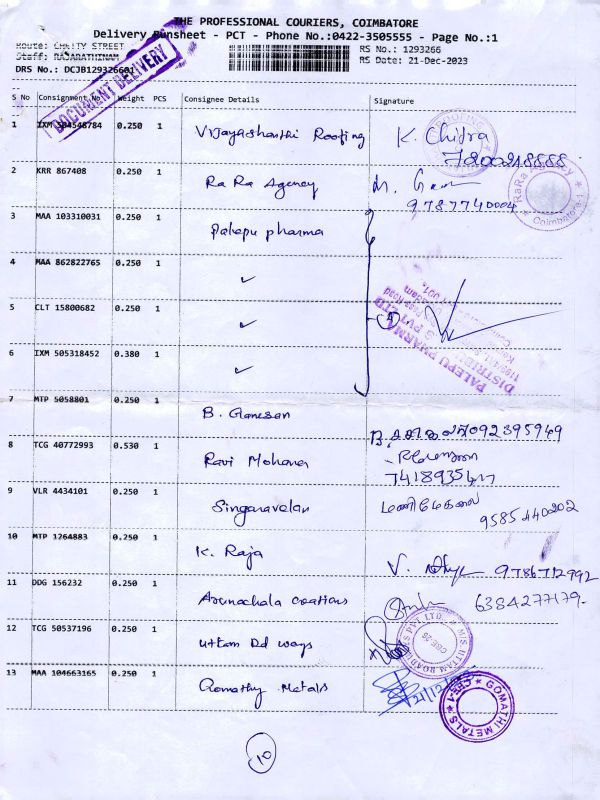 THE PROFESSIONAL COURIERS, COIMBATORE
Delivery Runsheet - PCT - Phone No.:0422-3505555 - Page No.:1
Route: CHETTY STREET
Staff: RAJARATHINAM
DRS No.: DCJB129326601
RS No.: 1293266
RS Date: 21-Dec-2023
DOCUMENT DELIVERY
S No Consignment No Weight PCS Consignee Details Signature
1 IXM 504548784 0.250 1 Vijayashanthi Roofing K. Chitra
7800218888
2 KRR 867408 0.250 1 Ra Ra Agency
9787740004
RaRa Agency Coimbatore-1
3 MAA 103310031 0.250 1 Palepu pharma
4 MAA 862822765 0.250 1 ✓
5 CLT 15800682 0.250 1 ✓ 4
PALEPU PHARMA
DISTRIBUTORS PVT LTD
6 IXM 505318452 0.380 1 ✓
7 MTP 5058801 0.250 1 B. Ganesan
8 TCG 40772993 0.530 1 Ravi Mohana
9 VLR 4434101 0.250 1 Singaravelan மணிமேகலை
9585440202
10 MTP 1264883 0.250 1 K. Raja V. 9786712992
11 DDG 156232 0.250 1 Arunachala coations 6384277179
12 TCG 50537196 0.250 1 Uttam Rd ways
M/S UTTAM ROADLINES PVT. LTD. CBE-26
13 MAA 104663165 0.250 1 Gomathy Metals 21/12/23
GOMATHI METALS CBE-1
10